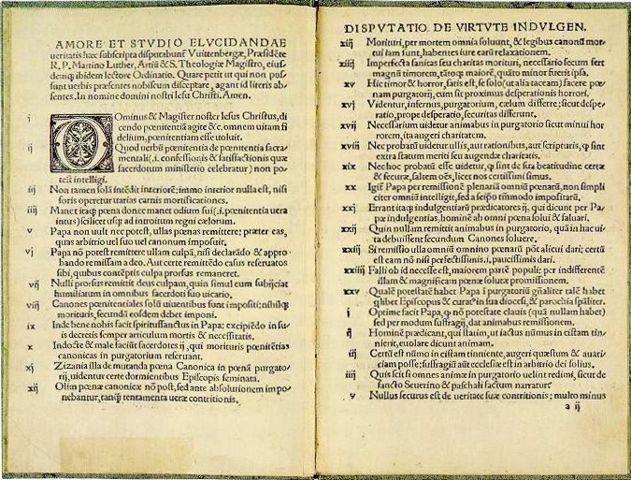 AMORE ET STVDIO ELVCIDANDAE
ueritatis hæc subscripta disputabunť Vuittenbergæ, Præsidēte
R. P. Martino Luther, Artiū & S. Theologiæ Magistro, eius-
demq; ibidem lectore Ordinario. Quare petit ut qui non pos-
sunt uerbis præsentes nobiscum disceptare, agant id literis ab-
sentes. In nomine domini nostri Iesu Christi. Amen.
i Ominus & Magister noster Iesus Christus, di
cendo pœnitentiā agite &c. omnem uitam fi
delium, pœnitentiam esse uoluit.
ij Quod uerbū pœnitentia de pœnitentia sacra
mentali (.i. confessionis & satisfactionis quæ
sacerdotum ministerio celebratur) non po-
test intelligi.
iij Non tamen solā intēdit interiorē: immo interior nulla est, nisi
foris operetur uarias carnis mortificationes.
iiij Manet itaq; pœna donec manet odium sui (.i. pœnitentia uera
intus) scilicet usq; ad introitum regni cælorum.
v Papa non uult nec potest, ullas pœnas remittere: præter eas,
quas arbitrio uel suo uel canonum imposuit.
vj Papa nō potest remittere ullam culpā, nisi declarādo & appro-
bando remissam a deo. Aut certe remittēdo casus reseruatos
sibi, quibus contēptis culpa prorsus remaneret.
vij Nulli prorsus remittit deus culpam, quin simul eum subijciat
humiliatum in omnibus sacerdoti suo uicario.
viij Canones pœnitentiales solū uiuentibus sunt impositi: nihilq;
morituris, secundū eosdem debet imponi.
ix Inde bene nobis facit spiritussanctus in Papa: excipiēdo in su-
is decretis semper articulum mortis & necessitatis.
x Indocte & male faciūt sacerdotes ij, qui morituris pœnitētias
canonicas in purgatorium reseruant.
xj Zizania illa de mutanda pœna Canonica in pœnā purgato-
rij, uidentur certe dormientibus Episcopis seminata.
xij Olim pœnæ canonicæ nō post, sed ante absolutionem impo-
nebantur, tanq̄ tentamenta ueræ contritionis.
DISPVTATIO DE VIRTVTE INDVLGEN.
xiij Morituri, per mortem omnia soluunt, & legibus canonū mor-
tui iam sunt, habentes iure earū relaxationem.
xiiij Imperfecta sanitas seu charitas morituri, necessario secum fert
magnū timorem, tātoq; maiorē, quāto minor fuerit ipsa.
xv Hic timor & horror, satis est, se solo (ut alia taceam) facere pœ-
nam purgatorij, cum sit proximus desperationis horrori.
xvj Videntur, infernus, purgatorium, cælum differre: sicut despe-
ratio, prope desperatio, securitas differunt.
xvij Necessarium uidetur animabus in purgatorio sicut minui hor-
rorem, ita augeri charitatem.
xviij Nec probatū uidetur ullis, aut rationibus, aut scripturis, q̄ sint
extra statum meriti seu augendæ charitatis.
xix Nec hoc probatū esse uidetur, q̄ sint de sua beatitudine certæ
& securæ, saltem oēs, licet nos certissimi simus.
xx Igit̃ Papa per remissionē plenariā omniū pœnarū, non simpli
citer omniū intelligit, sed a seipso tātūmodo impositarū.
xxj Errant itaq; indulgentiarū prædicatores ij, qui dicunt per Pa-
pæ indulgentias, hominē ab omni pœna solui & saluari.
xxij Quin nullam remittit animabus in purgatorio, quā in hac ui-
ta debuissent secundum Canones soluere.
xxiij Si remissio ulla omniū omnino pœnarū pōt alicui dari; certū
est eam nō nisi perfectissimis, .i. paucissimis dari.
xxiiij Falli ob id necesse est, maiorem partē populi: per indifferentē
illam & magnificam pœnæ solutæ promissionem.
xxv Qualē potestatē habet Papa ī purgatoriū gñaliter talē habet
quilibet Episcopus & curat' in sua diocesi, & parochia spāliter.
i Optime facit Papa, q̄ nō potestate clauis (quā nullam habet)
sed per modum suffragij, dat animabus remissionem.
ij Hominē prædicant, qui statim, ut iactus nūmus in cistam tin-
nierit, euolare dicunt animam.
iij Certū est nūmo in cistam tinniente, augeri quæstum & auari-
ciam posse: suffragiū aūt ecclesiæ est in arbitrio dei solius.
iiij Quis scit si omnes animæ in purgatorio uelint redimi, sicut de
sancto Seuerino & paschali factum narratur.
v Nullus securus est de ueritate suæ contritionis; multo minus
a ij